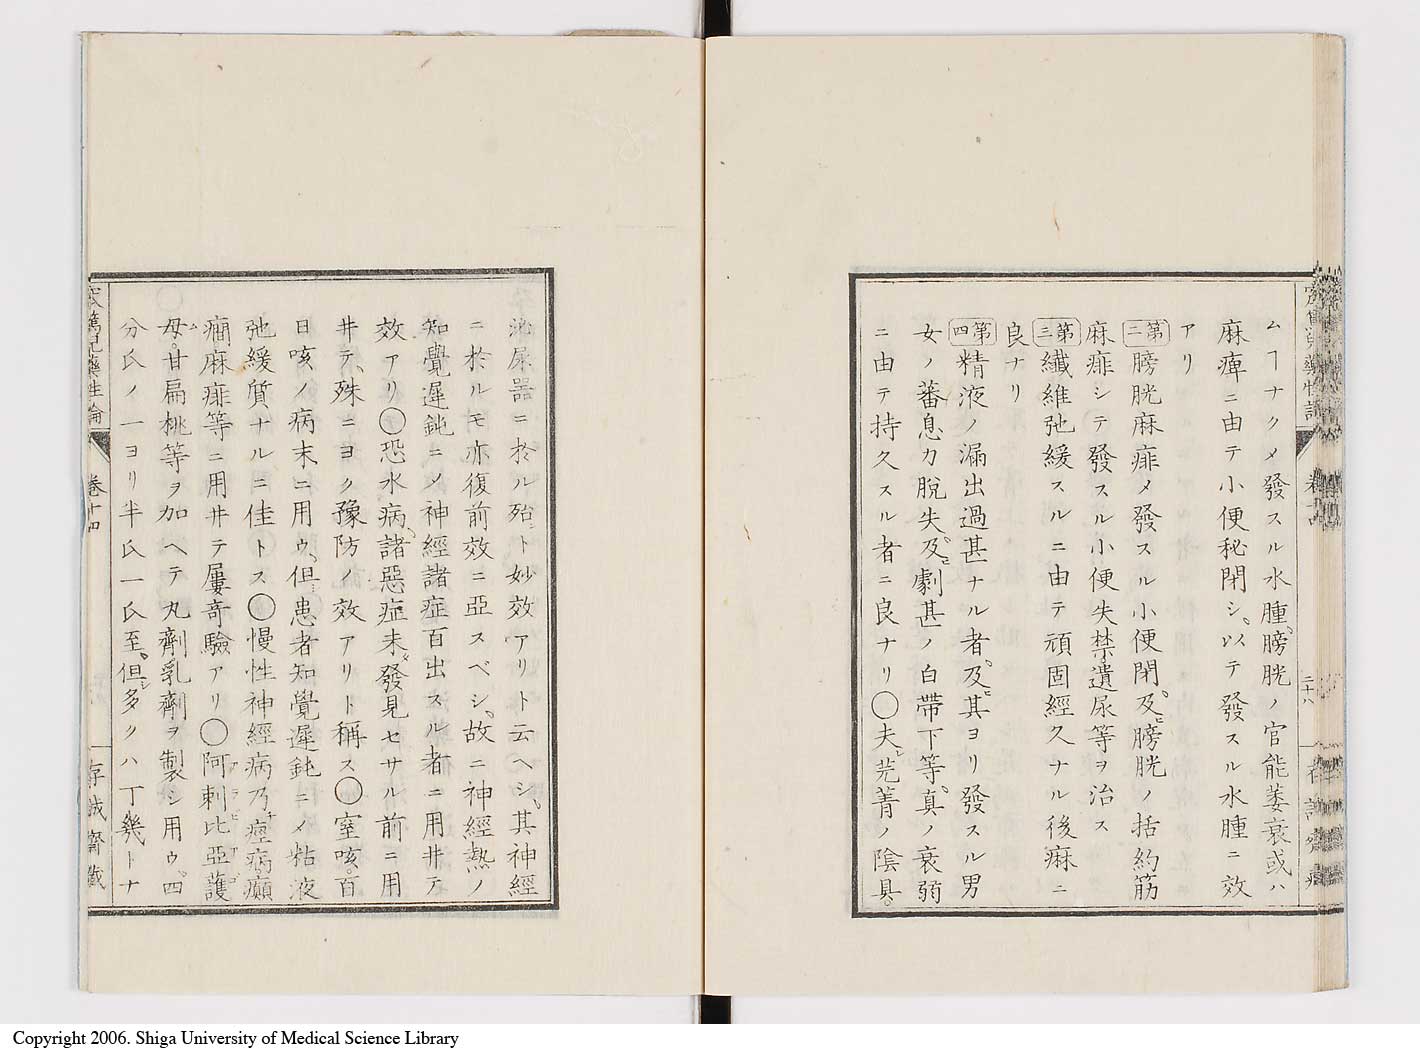 ムヿナクメ發スル水腫、膀胱ノ官能萎衰或ハ
麻痺ニ由テ小便秘閉シ、以テ發スル水腫ニ效
アリ
第二 膀胱麻痱メ發スル小便閉、及ヒ膀胱ノ括約筋
麻痱シテ發スル小便失禁遺尿等ヲ治ス
第三 纎維弛緩スルニ由テ頑固經久ナル後痳ニ
良ナリ
第四 精液ノ漏出過甚ナル者、及ヒ其ヨリ發スル男
女ノ蕃息力脫失、及ヒ劇甚ノ白帶下等、真ノ衰弱
ニ由テ持久スル者ニ良ナリ○夫レ芫菁ノ陰具。
泌尿器ニ於ル殆ント妙效アリト云ヘシ、其神經
ニ於ルモ亦復前效ニ亞スベシ、故ニ神經熱ノ
知覺遲鈍ニメ神經諸症百出スル者ニ用井テ
效アリ○恐水病、諸惡症未タ發見セサル前ニ用
井テ、殊ニヨク豫防ノ效アリト稱ス○窒咳。百
日咳ノ病末ニ用ウ、但シ患者知覺遲鈍ニメ粘液
弛緩質ナルニ佳トス○慢性神經病乃チ痙病。癲
癎麻痱等ニ用井テ屢奇驗アリ○阿剌比亞護
謨。甘扁桃等ヲ加ヘテ丸劑乳劑ヲ製シ用ウ。四
分氏ノ一ヨリ半氏一氏至、但シ多クハ丁幾トナ
卷十四
存誠齋藏
二十八
Copyright 2006. Shiga University of Medical Science Library